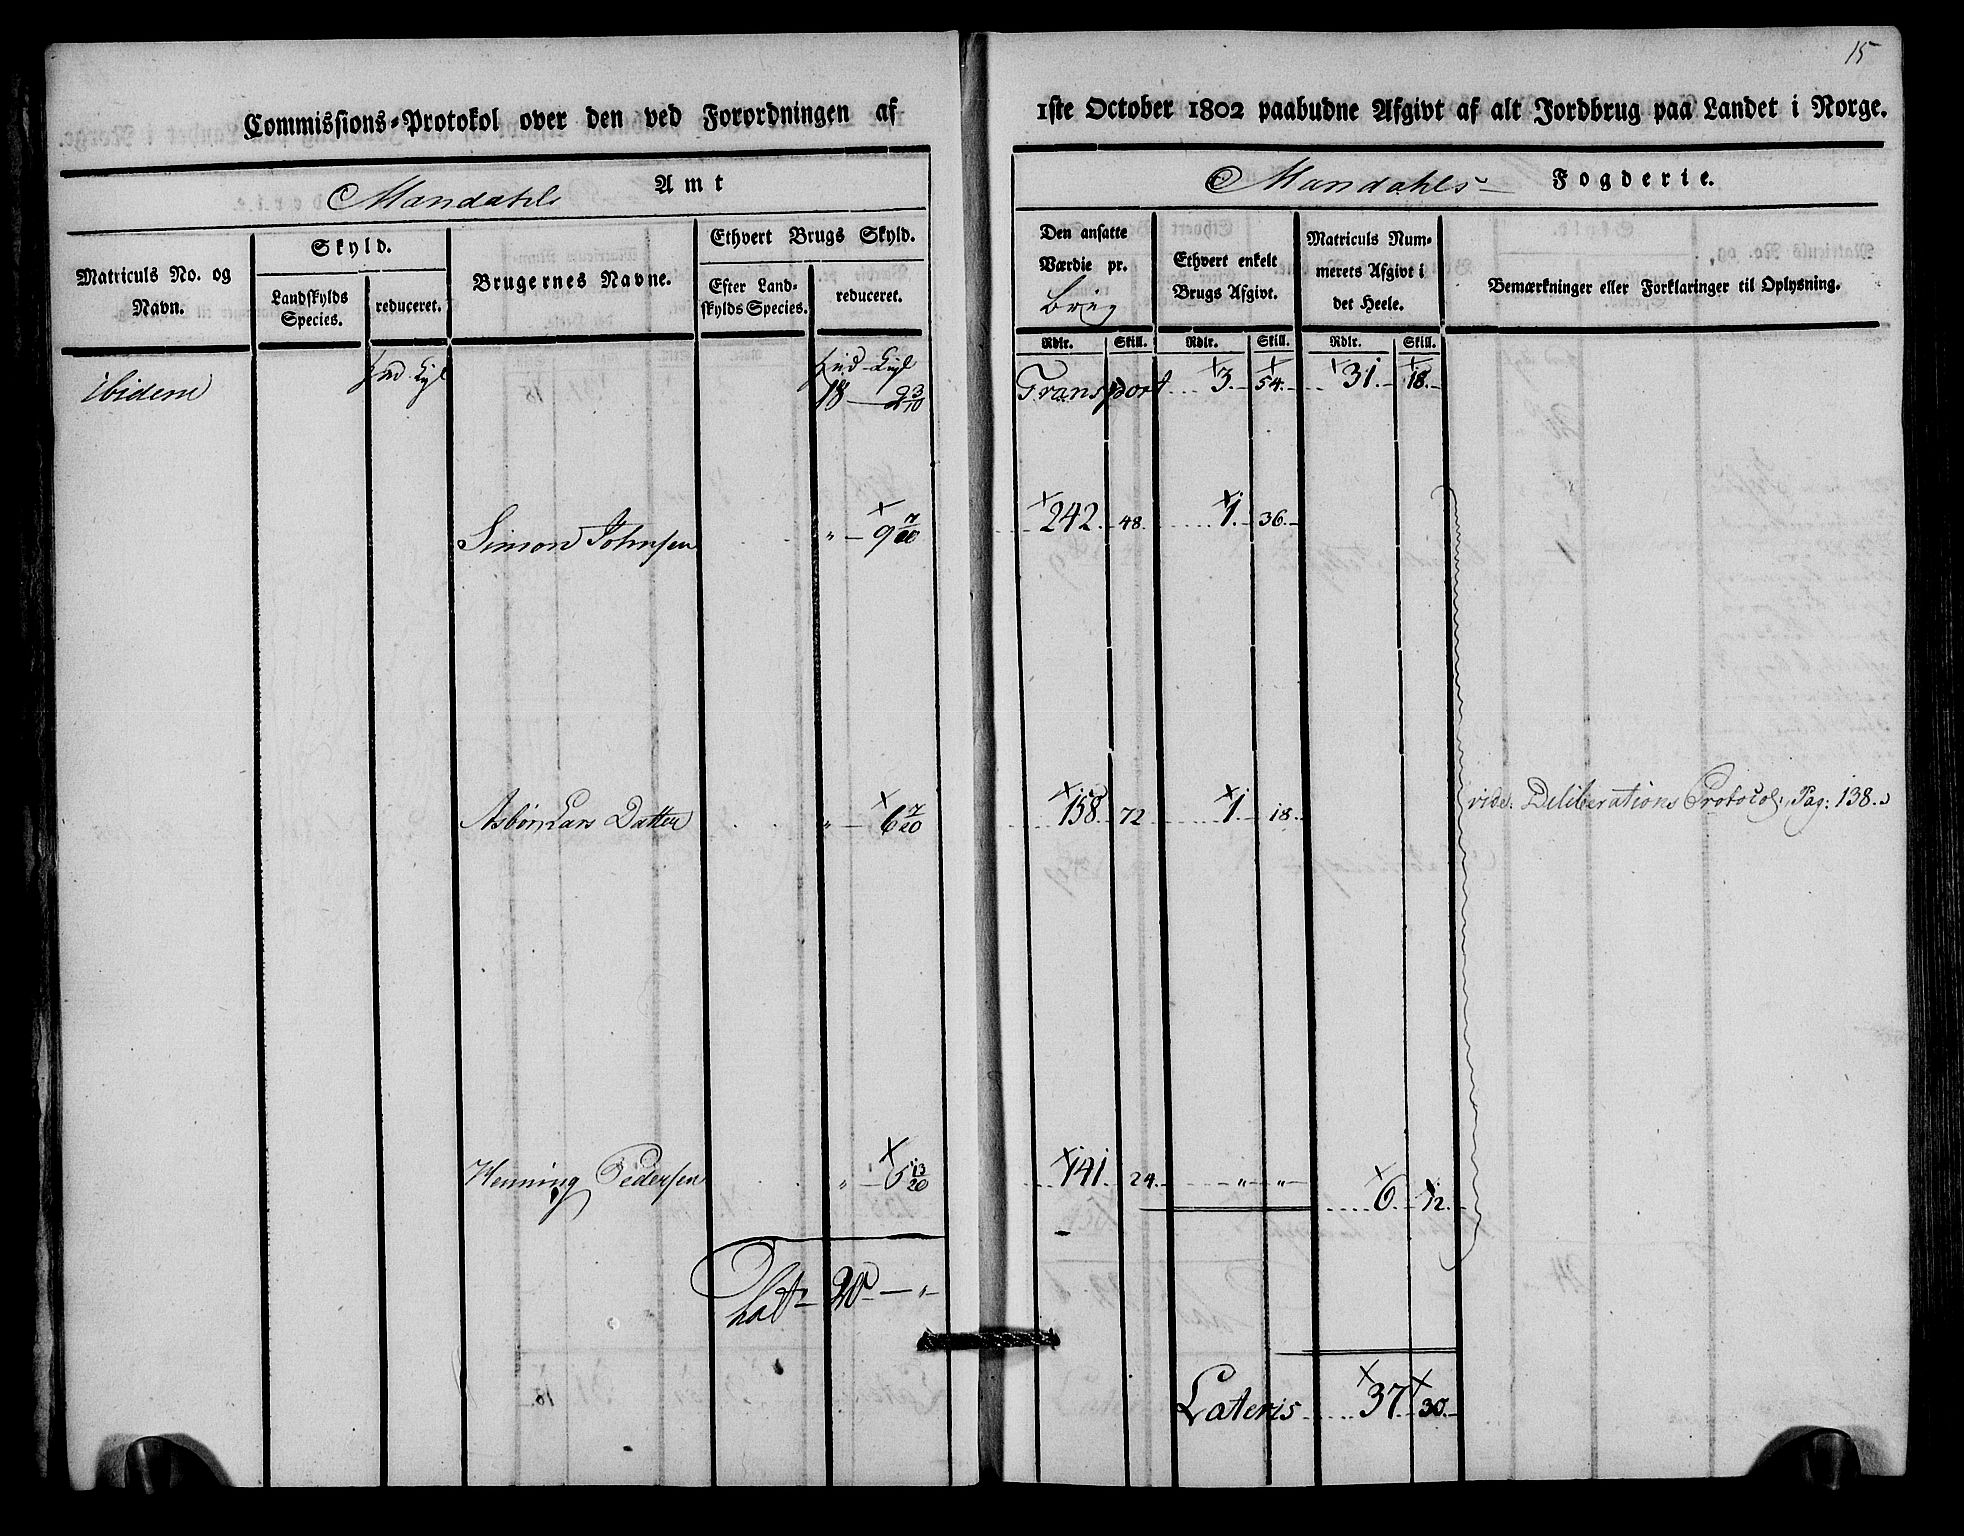 15
Commissions-Protokol over den ved Forordningen af 1ste October 1802 paabudne Afgivt af alt Jordbrug paa Landet i Norge.
Mandahls Amt
Mandahls Fogderie.
Matriculs No. og Navn.
Skyld.
Landskylds Species.
reduceret.
Brugernes Navne.
Ethvert Brugs Skyld.
Efter Landskylds Species.
reduceret.
Den ansatte Værdie pr. brug
Ethvert enkelt Brugs Afgivt.
Matriculs Nummerets Afgivt i det Heele.
Bemærkninger eller Forklaringer til Oplysning.
Rdlr. Skill. Rdlr. Skill. Rdlr. Skill.
ibidem 18 — 2 3/10 Transport 3. 54. 31. 18.
Simon Johnsen " — 9 7/20 242. 48. 1. 36.
Asbör Lars Datter " — 6 7/20 158 72 1. 18. vide: Deliberations Protocol, Pag: 138.
Henning Pedersen " — 5 13/20 141 24. " " 6. 12.
20 — "
Lateris 37. 30.